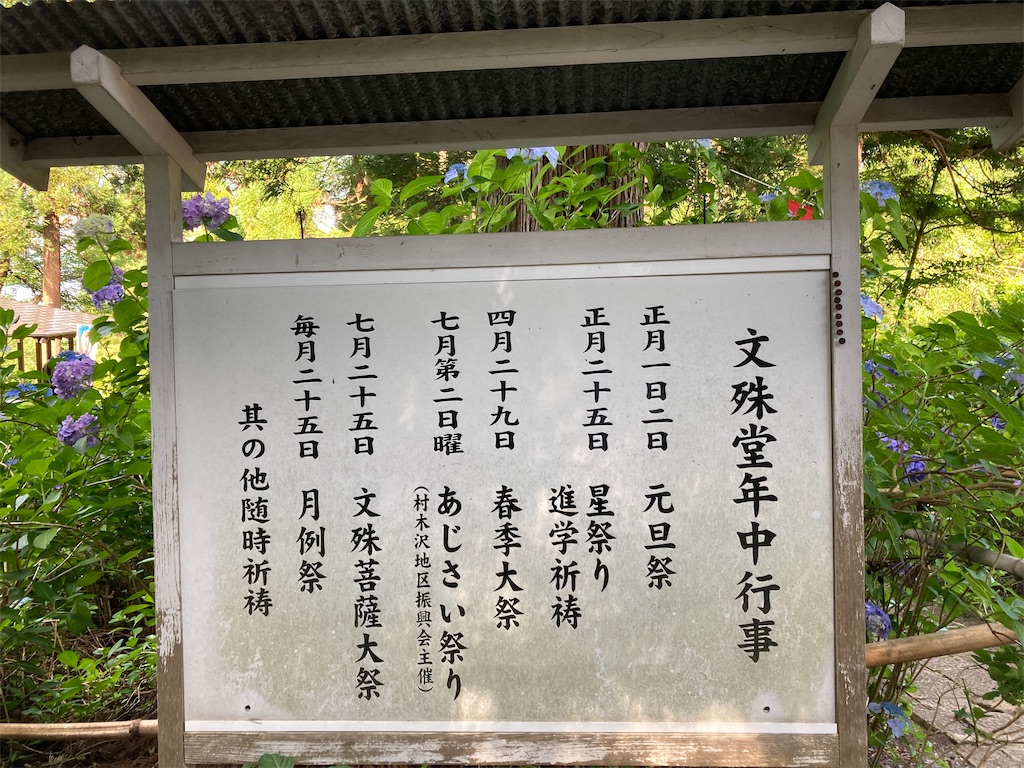 文殊堂年中行事
正月一日二日 元旦祭
正月二十五日 星祭り
進学祈祷
四月二十九日 春季大祭
七月第二日曜 あじさい祭り
(村木沢地区振興会主催)
七月二十五日 文殊菩薩大祭
毎月二十五日 月例祭
其の他随時祈祷